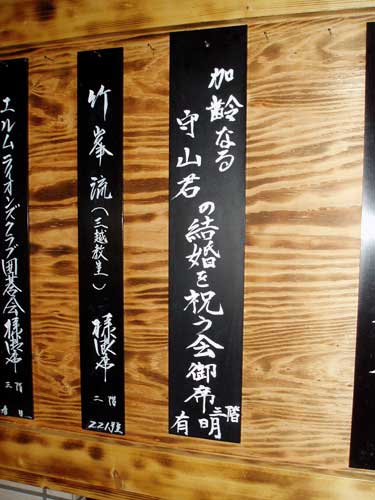 加齢なる
守山君の結婚を祝う会御席
三階
有明
竹峯流(三越教室)様御席
二階
221号室
エルムライオンズクラブ囲碁会様御席
三階